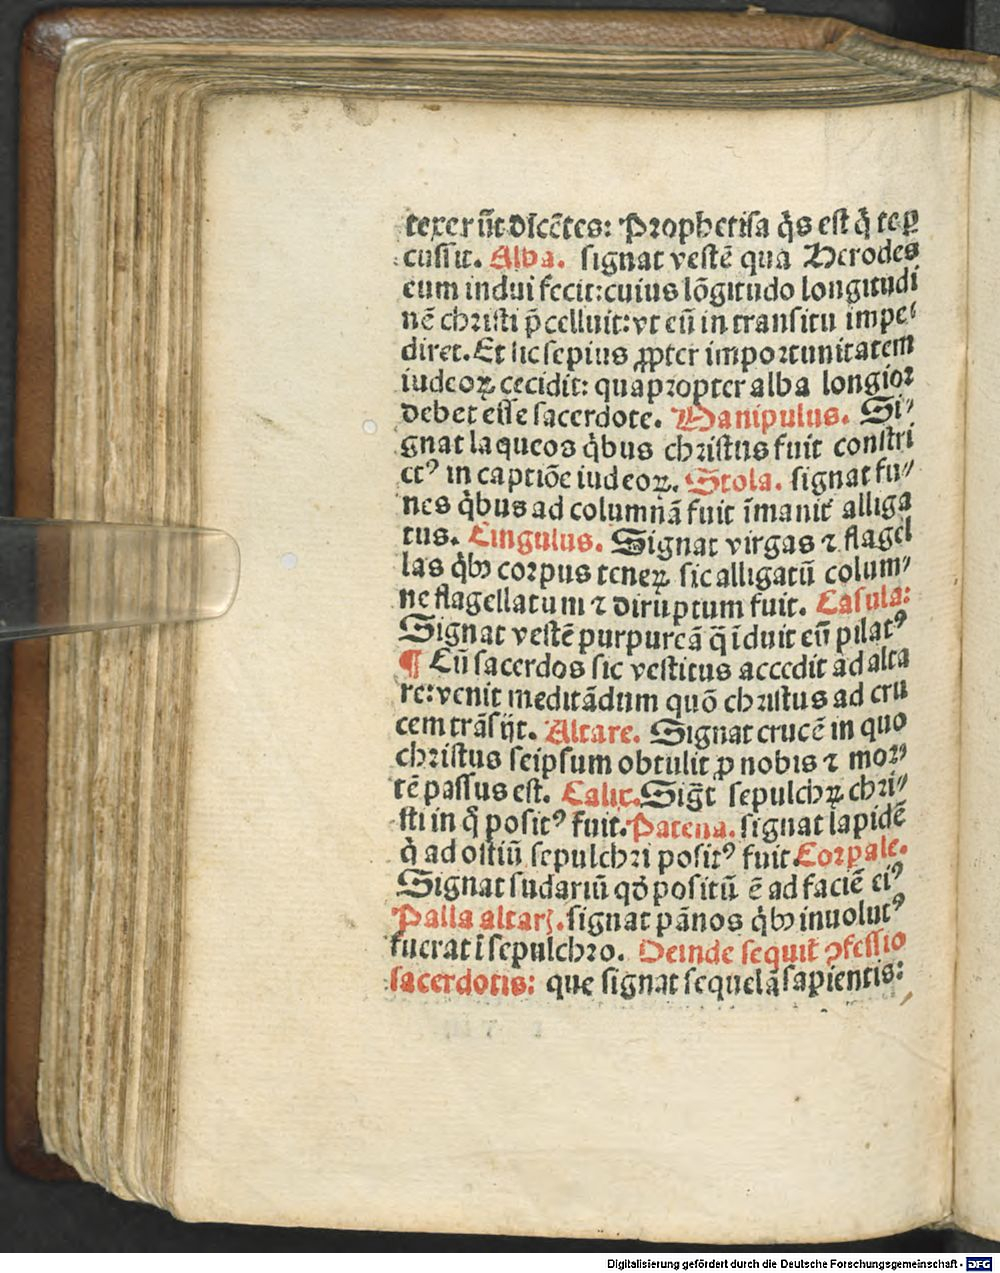 texerūt dicētes: Prophetisa q̇s est q̇ te ꝑ
cussit. Alba. signat vestē qua Herodes
eum indui fecit: cuius lōgitudo longitudi
nē christi p̄celluit: vt eū in transitu impe⸗
diret. Et sic sepius ꝓpter importunitatem
iudeoꝝ cecidit: quapropter alba longior
debet esse sacerdote. Manipulus. Si⸗
gnat laqueos q̇bus christus fuit constri
ctꝰ in captiōe iudeoꝝ. Stola. signat fu⸗
nes q̇bus ad columnā fuit īmanit̓ alliga
tus. Cingulus. Signat virgas ⁊ flagel
las q̇bꝫ corpus teneꝝ sic alligatū colum⸗
ne flagellatum ⁊ diruptum fuit. Casula:
Signat vestē purpureā q̄ īduit eū pilatꝰ
¶ Cū sacerdos sic vestitus accedit ad alta
re: venit meditādum quō christus ad cru
cem trāsijt. Altare. Signat crucē in quo
christus seipsum obtulit ꝓ nobis ⁊ mor⸗
tē passus est. Calix. Siḡt sepulchꝝ chri⸗
sti in q̇ positꝰ fuit. Patena. signat lapidē
q̇ ad ostiū sepulchri positꝰ fuit Corꝑale.
Signat sudariū qđ positū ē ad faciē eiꝰ
Palla altarꝭ. signat pānos q̇bꝫ inuolutꝰ
fuerat ī sepulchro. Deinde sequit̓ ꝯfessio
sacerdotis: que signat sequelā sapientis:
Digitalisierung gefördert durch die Deutsche Forschungsgemeinschaft - DFG